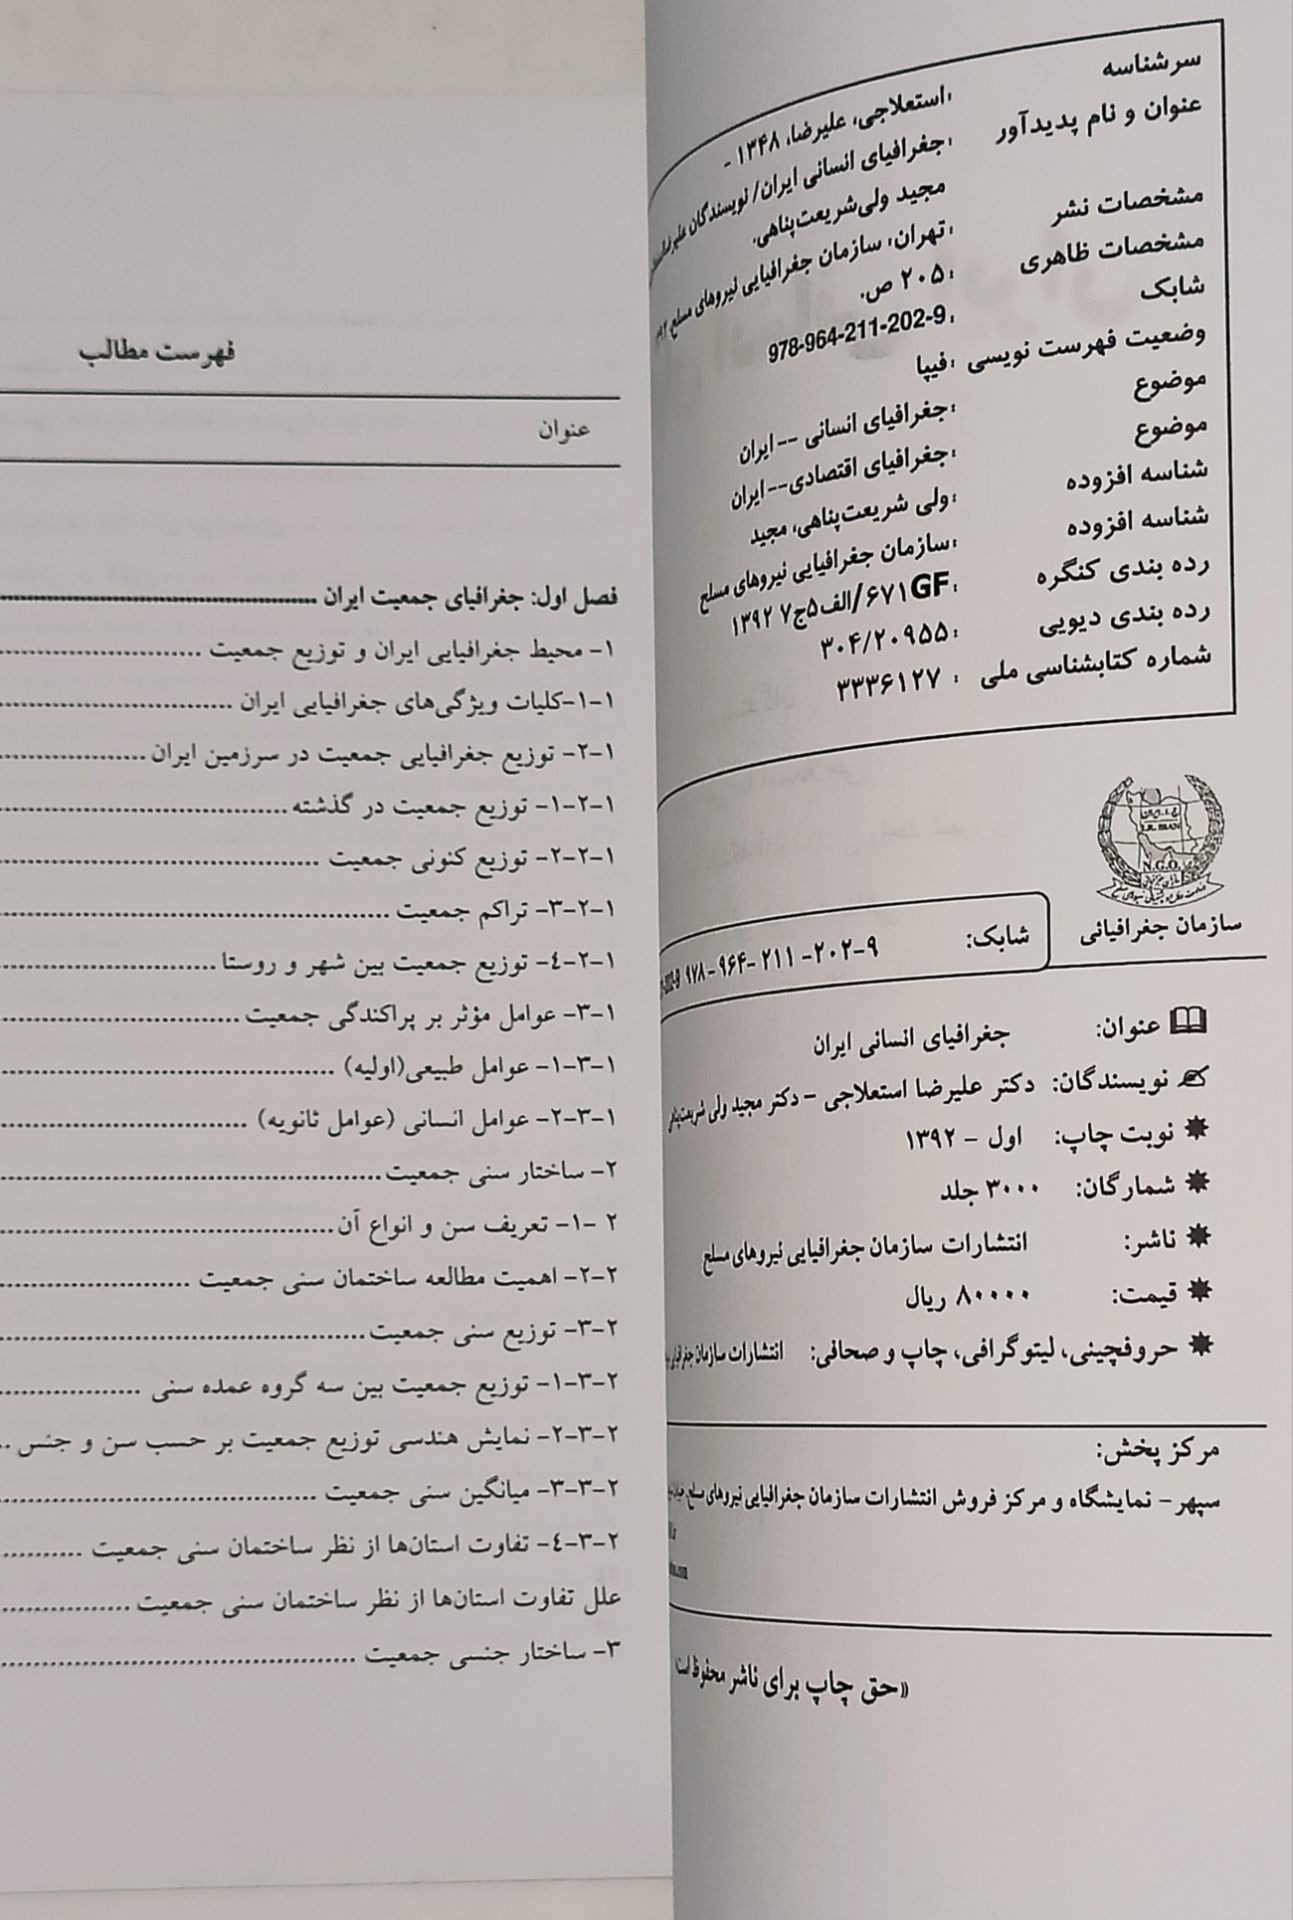 سرشناسه :استعلاجی، علیرضا، ۱۳۴۸ -
عنوان و نام پدیدآور :جغرافیای انسانی ایران/ نویسندگان
مجید ولی‌شریعت‌پناهی.
مشخصات نشر :تهران: سازمان جغرافیایی نیروهای مسلح
مشخصات ظاهری :۲۰۵ ص.
شابک :978-964-211-202-9
وضعیت فهرست نویسی :فیپا
موضوع :جغرافیای انسانی -- ایران
موضوع :جغرافیای اقتصادی-- ایران
شناسه افزوده :ولی شریعت‌پناهی، مجید
شناسه افزوده :سازمان جغرافیایی نیروهای مسلح
رده بندی کنگره :GF۶۷۱/الف۵ج۷ ۱۳۹۲
رده بندی دیویی :۳۰۴/۲۰۹۵۵
شماره کتابشناسی ملی : ۳۳۳۶۱۲۷
I.R. IRAN
N.G.O.
سازمان جغرافیائی
شابک: ۹-۲۰۲- ۲۱۱ -۹۶۴ - ۹۷۸
عنوان: جغرافیای انسانی ایران
نویسندگان: دکتر علیرضا استعلاجی - دکتر مجید ولی شریعت‌پناهی
نوبت چاپ: اول - ۱۳۹۲
شمارگان: ۳۰۰۰ جلد
ناشر: انتشارات سازمان جغرافیایی نیروهای مسلح
قیمت: ۸۰۰۰۰ ریال
حروفچینی، لیتوگرافی، چاپ و صحافی: انتشارات سازمان جغرافیایی
مرکز پخش:
سپهر - نمایشگاه و مرکز فروش انتشارات سازمان جغرافیایی نیروهای مسلح،
«حق چاپ برای ناشر محفوظ است
فهرست مطالب
عنوان
فصل اول: جغرافیای جمعیت ایران
۱- محیط جغرافیایی ایران و توزیع جمعیت
۱-۱-کلیات ویژگی‌های جغرافیایی ایران
۱-۲- توزیع جغرافیایی جمعیت در سرزمین ایران
۱-۲-۱- توزیع جمعیت در گذشته
۱-۲-۲- توزیع کنونی جمعیت
۱-۲-۳- تراکم جمعیت
۱-۲-٤- توزیع جمعیت بین شهر و روستا
۱-۳- عوامل مؤثر بر پراکندگی جمعیت
۱-۳-۱- عوامل طبیعی(اولیه)
۱-۳-۲- عوامل انسانی (عوامل ثانویه)
۲- ساختار سنی جمعیت
۲ -۱- تعریف سن و انواع آن
۲-۲- اهمیت مطالعه ساختمان سنی جمعیت
۲-۳- توزیع سنی جمعیت
۲-۳-۱- توزیع جمعیت بین سه گروه عمده سنی
۲-۳-۲- نمایش هندسی توزیع جمعیت بر حسب سن و جنس
۲-۳-۳- میانگین سنی جمعیت
۲-۳-٤- تفاوت استان‌ها از نظر ساختمان سنی جمعیت
علل تفاوت استان‌ها از نظر ساختمان سنی جمعیت
۳- ساختار جنسی جمعیت